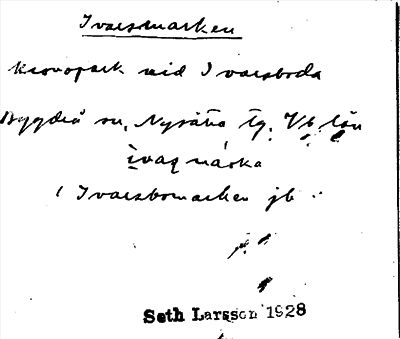 Ivarsmarken
Kronopark vid Ivarsboda
Bygdeå sn, Nysätra tg. Vb län
ìvaṣmárka
Ivarsbomarken jb
Seth Larsson 1928